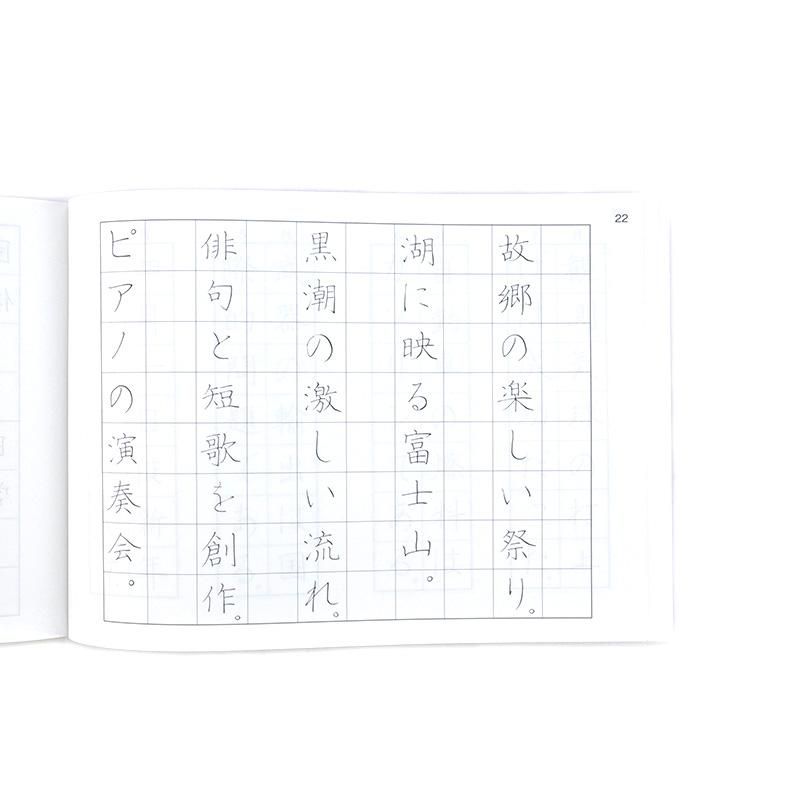 22
故郷の楽しい祭り。
湖に映る富士山。
黒潮の激しい流れ。
俳句と短歌を創作。
ピアノの演奏会。